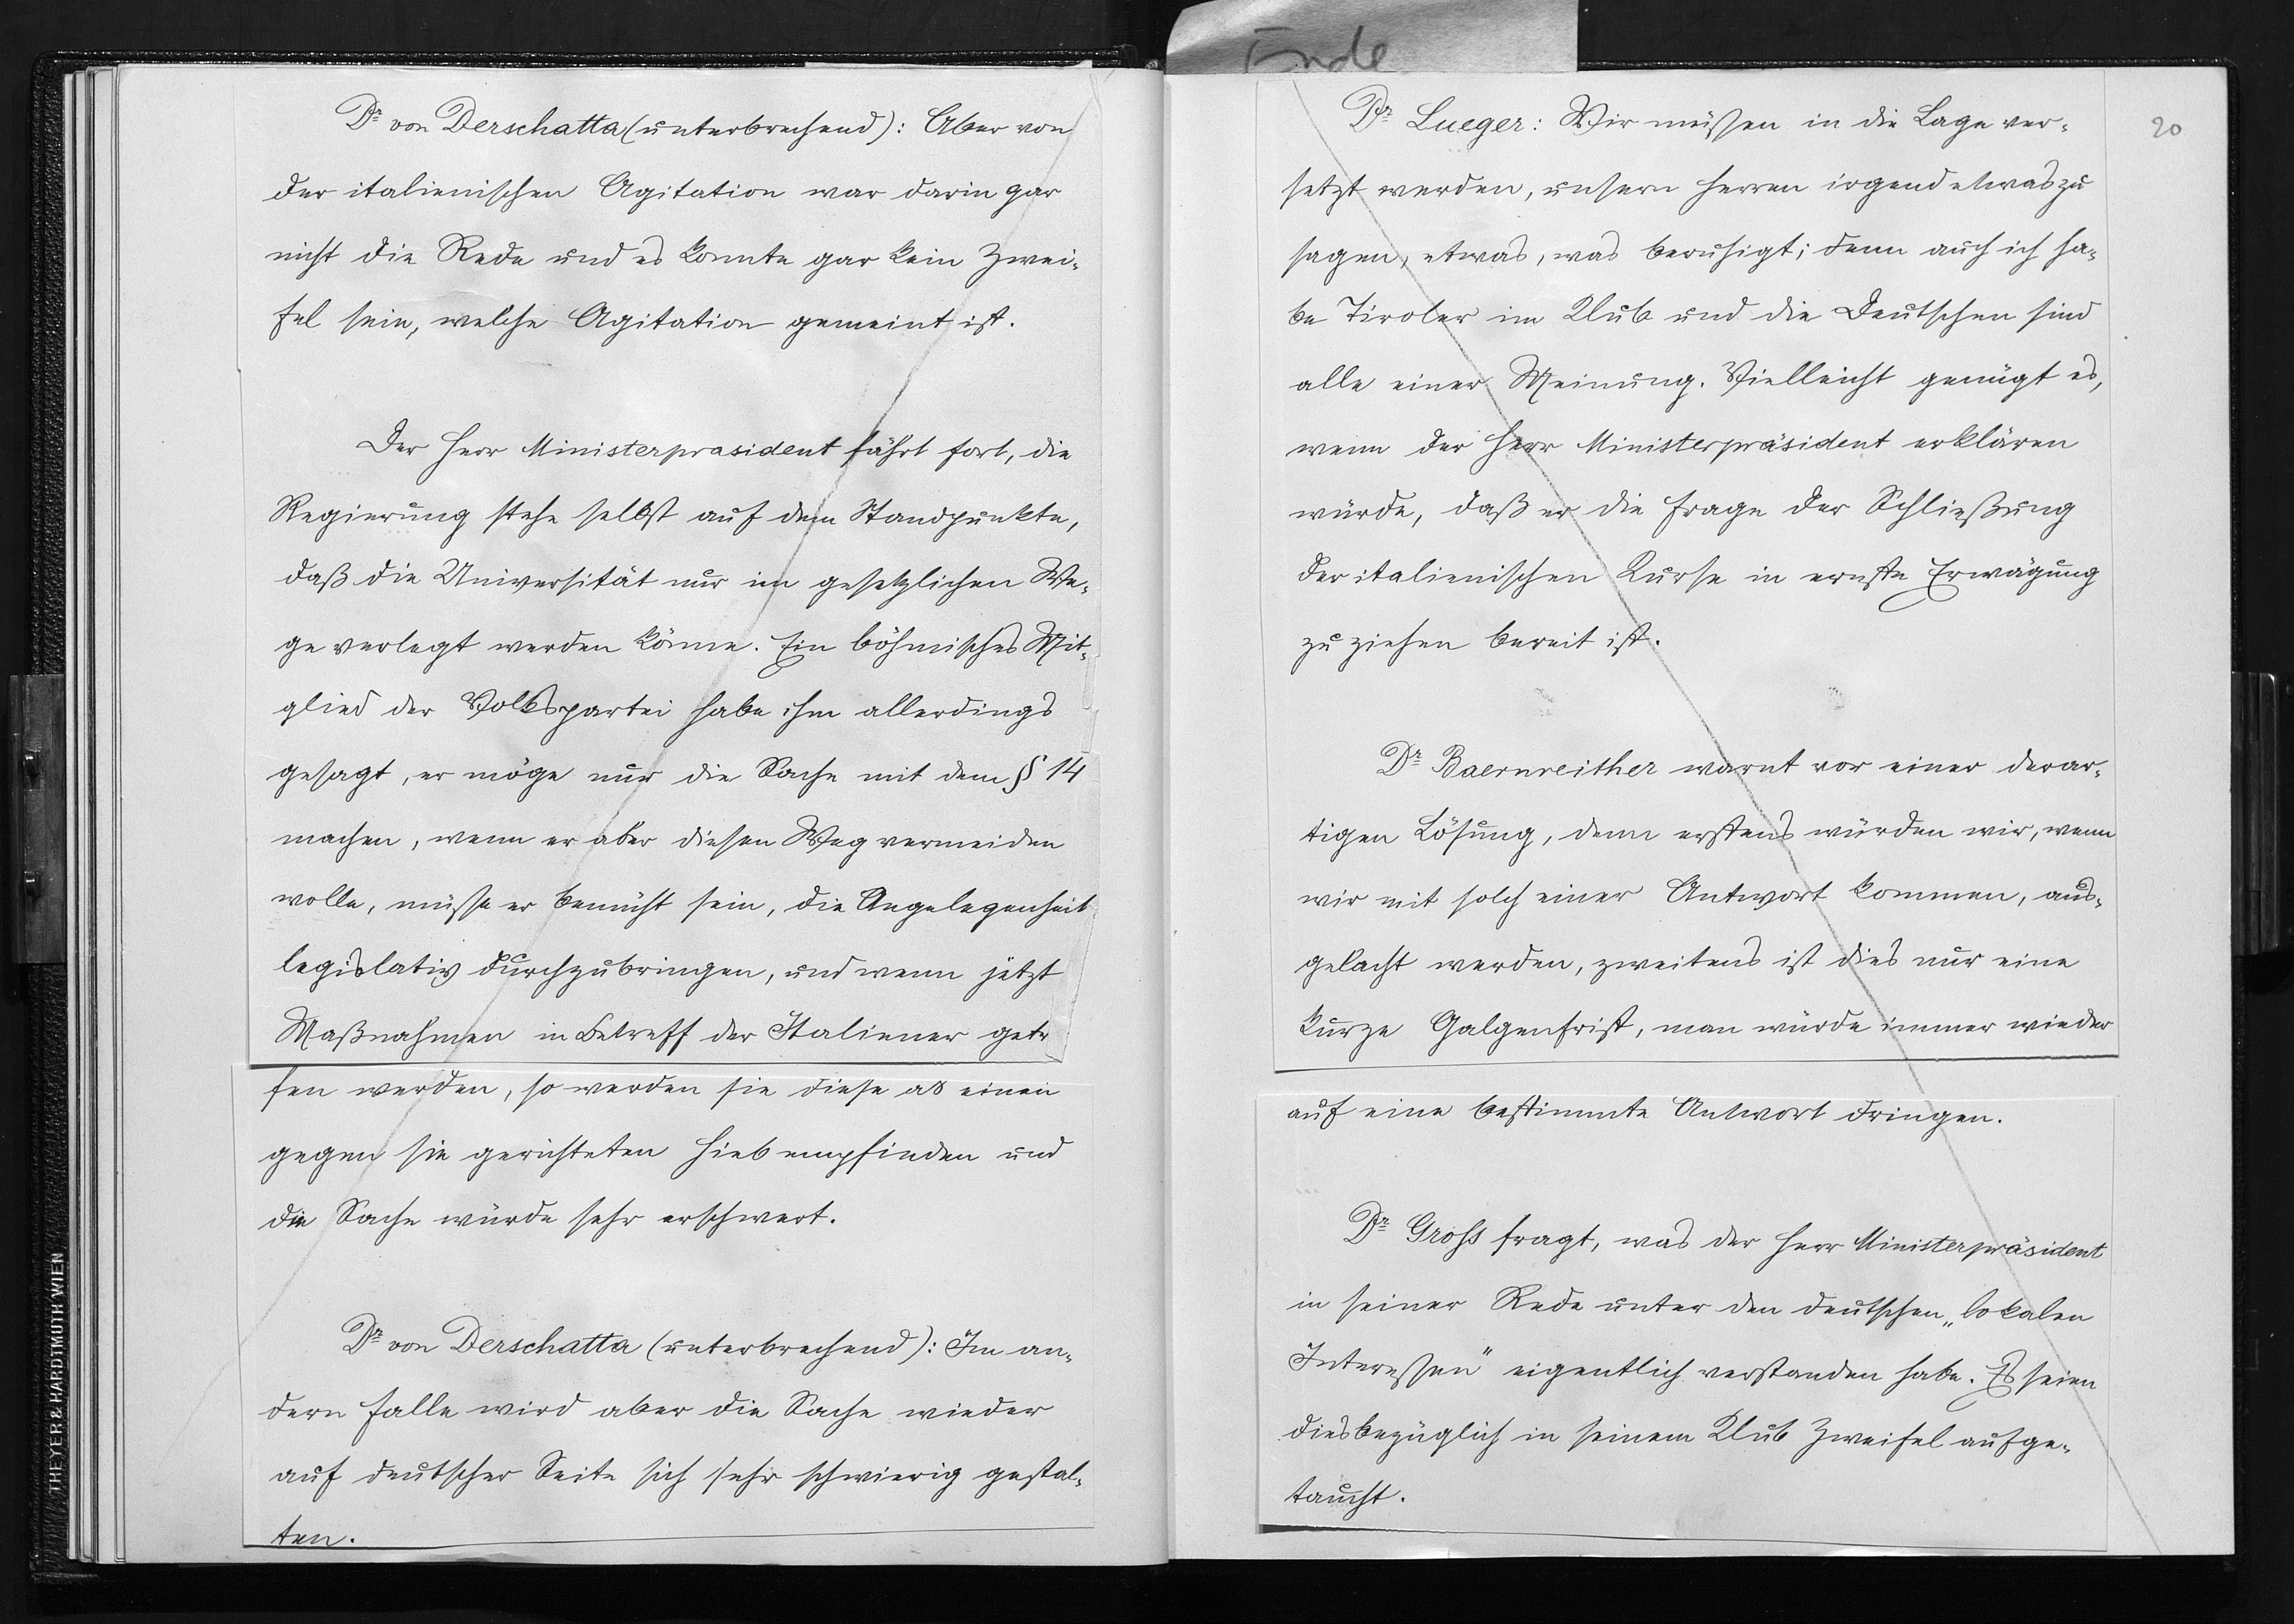 Ende
Dr von Derschatta (unterbrechend): Aber von
der italienischen Agitation war darin gar
nicht die Rede und es konnte gar kein Zwei-
fel sein, welche Agitation gemeint ist.
Der Herr Ministerprasident fährt fort, die
Regierung stehe selbst auf dem Standpunkte,
daß die Universität nur im gesetzlichen We-
ge verlegt werden könne. Ein böhmisches Mit-
glied der Volkspartei habe ihm allerdings
gesagt, er möge nur die Sache mit dem § 14
machen, wenn er aber diesen Weg vermeiden
wolle, müsse er bemüht sein, die Angelegenheit
legislativ durchzubringen, und wenn jetzt
Maßnahmen in Betreff der Italiener getr
fen werden, so werden sie diese as einen
gegen sie gerichteten Hieb empfinden und
die Sache würde sehr erschwert.
Dr von Derschatta (unterbrechend): Im an-
dern Falle wird aber die Sache wieder
auf deutscher Seite sich sehr schwierig gestal-
ten.
THEYER & HARDTMUTH WIEN
20
Dr Lueger: Wir müssen in die Lage ver-
setzt werden, unsern Herren irgend etwas zu
sagen, etwas, was beruhigt; denn auch ich ha-
be Tiroler im Klub und die Deutschen sind
alle einer Meinung. Vielleicht genügt es,
wenn der Herr Ministerpräsident erklären
würde, daß er die Frage der Schließung
der italienischen Kurse in ernste Erwägung
zu ziehen bereit ist.
Dr Baernreither warnt vor einer derar-
tigen Lösung, denn erstens würden wir, wenn
wir mit solch einer Antwort kommen, aus-
gelacht werden, zweitens ist dies nur eine
kurze Galgenfrist, man würde immer wieder
auf eine bestimmte Antwort dringen.
Dr Gross fragt, was der Herr Ministerpräsident
in seiner Rede unter den deutschen „lokalen
Interessen“ eigentlich verstanden habe. Es seien
diesbezüglich in seinem Klub Zweifel aufge-
taucht.